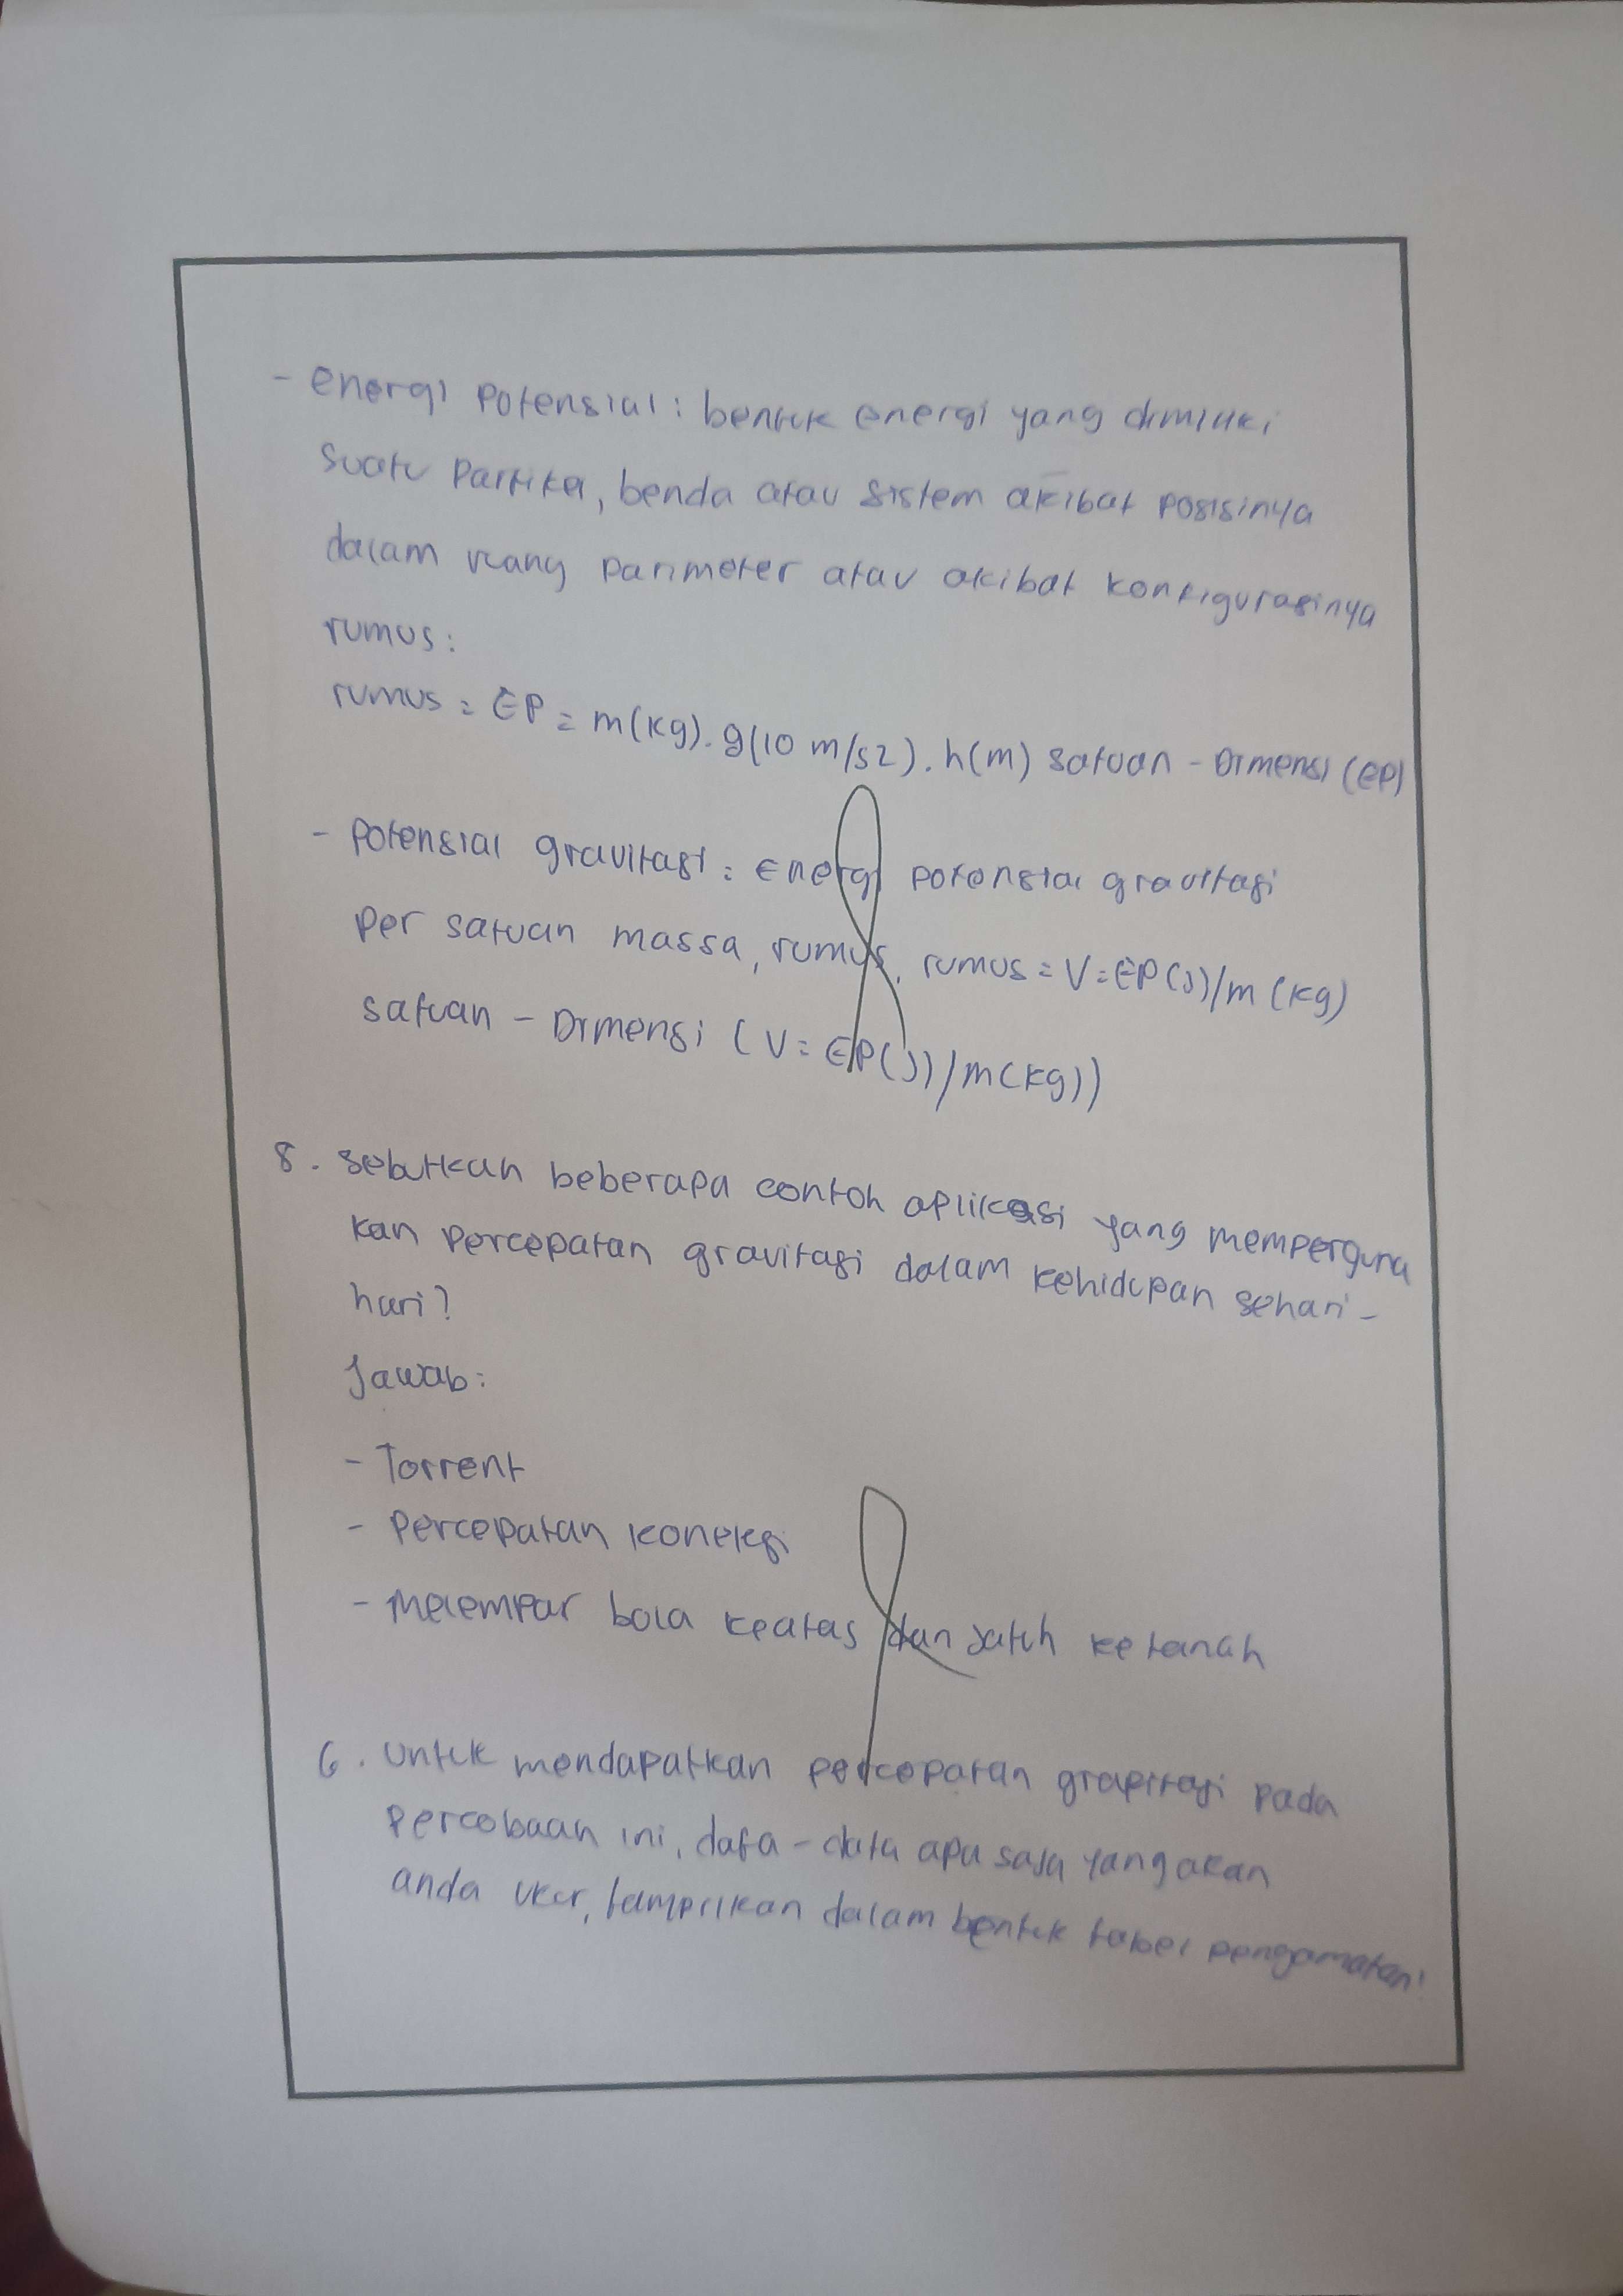 - energi potensial : bentuk energi yang dimiliki
suatu partikel, benda atau sistem akibat posisinya
dalam ruang parimeter atau akibat konfigurasinya
rumus :
rumus = EP = m(kg). g(10 m/s2). h(m) satuan - Dimensi (EP)
- potensial gravitasi : Energi potensial gravitasi
per satuan massa, rumus, rumus = V = EP(J)/m (kg)
satuan - Dimensi (V = EP(J)/m(kg))
8. sebutkan beberapa contoh aplikasi yang memperguna
kan percepatan gravitasi dalam kehidupan sehari -
hari?
Jawab :
- Torrent
- percepatan koneksi
- Melempar bola keatas dan jatuh ke tanah
6. untuk mendapatkan percepatan grapitasi pada
percobaan ini, data - data apa saja yang akan
anda ukur, tampilkan dalam bentuk tabel pengamatan!